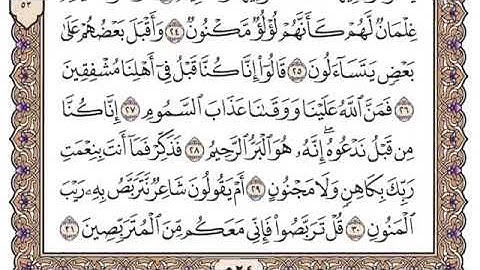 غِلْمَانٌ لَّهُمْ كَأَنَّهُمْ لُؤْلُؤٌ مَّكْنُونٌ ٢٤ وَأَقْبَلَ بَعْضُهُمْ عَلَىٰ
بَعْضٍ يَتَسَآءَلُونَ ٢٥ قَالُوٓا۟ إِنَّا كُنَّا قَبْلُ فِىٓ أَهْلِنَا مُشْفِقِينَ
٢٦ فَمَنَّ ٱللَّهُ عَلَيْنَا وَوَقَىٰنَا عَذَابَ ٱلسَّمُومِ ٢٧ إِنَّا كُنَّا
مِن قَبْلُ نَدْعُوهُ إِنَّهُۥ هُوَ ٱلْبَرُّ ٱلرَّحِيمُ ٢٨ فَذَكِّرْ فَمَآ أَنتَ بِنِعْمَتِ
رَبِّكَ بِكَاهِنٍ وَلَا مَجْنُونٍ ٢٩ أَمْ يَقُولُونَ شَاعِرٌ نَّتَرَبَّصُ بِهِۦ رَيْبَ
ٱلْمَنُونِ ٣٠ قُلْ تَرَبَّصُوا۟ فَإِنِّى مَعَكُم مِّنَ ٱلْمُتَرَبِّصِينَ ٣١
٥٢٤